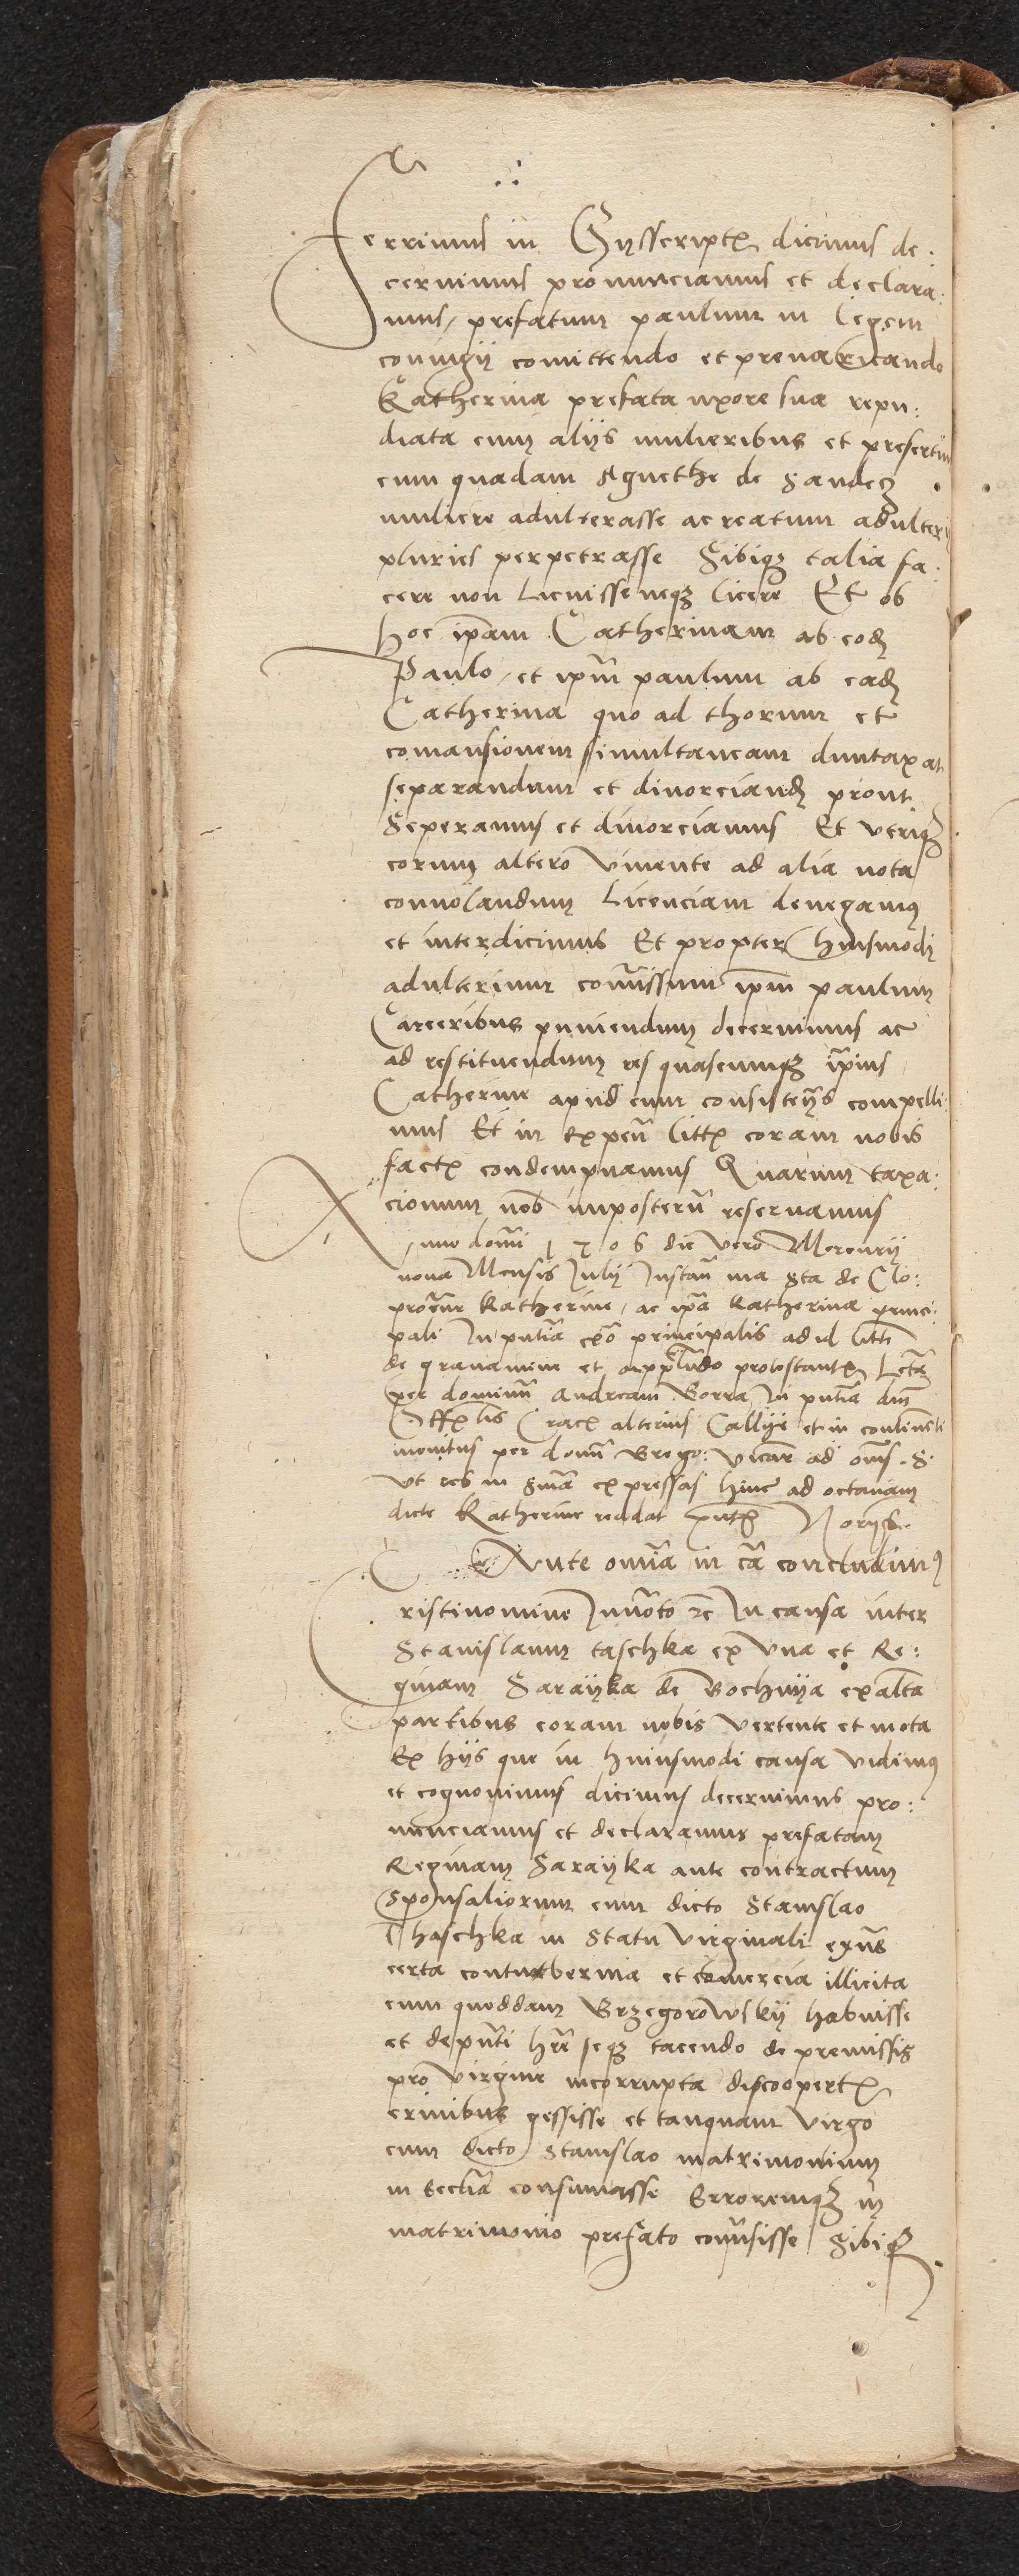 Ferrimus in Hijsscript(is) dicimus de.
cernimus pronunciamus et declara:
mus, prefatum paulum in legem
coniugij comittendo et prevaricando
Katherina prefata uxore sua repu:
diata cum alijs mulieribus et presertim
cum quadam Agnethe de Sandecz
muliere adulterasse ac reatum adulterij
pluries perpetrasse Sibiq(ue) talia fa:
cere non Licuisse neq(ue) licere Et ob
hoc ip̄am Catherinam ab eod(em)
Paulo, et ip̄m paulum ab ead(em)
Catherina quo ad thorum et
comansionem simultaneam duntaxat
separandum et divorciand(um) prout
Seperamus et divorciamus Et utriq(ue)
eorum altero vivente ad alia vota
convolandum Licenciam denegamus
et interdicimus Et propter huiusmodi
adulterium com̄issum ip̄m paulum
Carceribus puniendum decernimus ac
ad restituendum res quascumq(ue) ip̄ius
Catherine apud eum consisten̄s compelli:
mus Et in Expen̄ litt(is) coram nobis
fact(is) condempnamus Quarum taxa:
cionum nob̄ imposterū reservamus
Anno domī 1506 die vero Mercurij
nona Mensis Julij Instan̄ ma Sta de Clo:
procur̄ Katherine, ac ip̄a Katherina princi:
pali In p̄ntia
de gravamine et app̄lando protestant(e) Lc̄ta
per dominū Andream Gorra In p̄ntia dn̄i
Off(icia)lis Crac(oviensis) alterius Callije et in contine(n)ti
monitus per domū Grego: vicar̄ ad om̄s. S.
Ut res in s̄nia expressas hinc ad octavam
dicte Katherine reddat p̄nt(ibus) Norijs.
Ante omīa in c̄a concludimus
Cristinomine Invōto etc In causa inter
Stanislaum taschka ex Una et Re:
ginam Sarayka de Bochnija ex alt̄a
partibus coram nobis vertente et mota
Ex hijs que in huiusmodi causa vidimus
et cognovimus dicimus decernimus pro:
nunciamus et declaramus prefatam
Reginam Sarayka ante contractum
Sponsaliorum cum dicto Stanislao
Thaschka in Statu virginali ex̄ns
certa contubernia et comercia illicita
cum quoddam Grzegorowskij habuisse
et de p̄nti h̄re seq(ue) tacendo de premissis
pro virgine incorrupta discoopert(is)
crinibus gessisse et tanquam virgo
cum dicto Stanislao matrimonium
in eccl̄ia consumasse Erroremq(ue) in
matrimonio prefato com̄isisse Sibiq(ue)